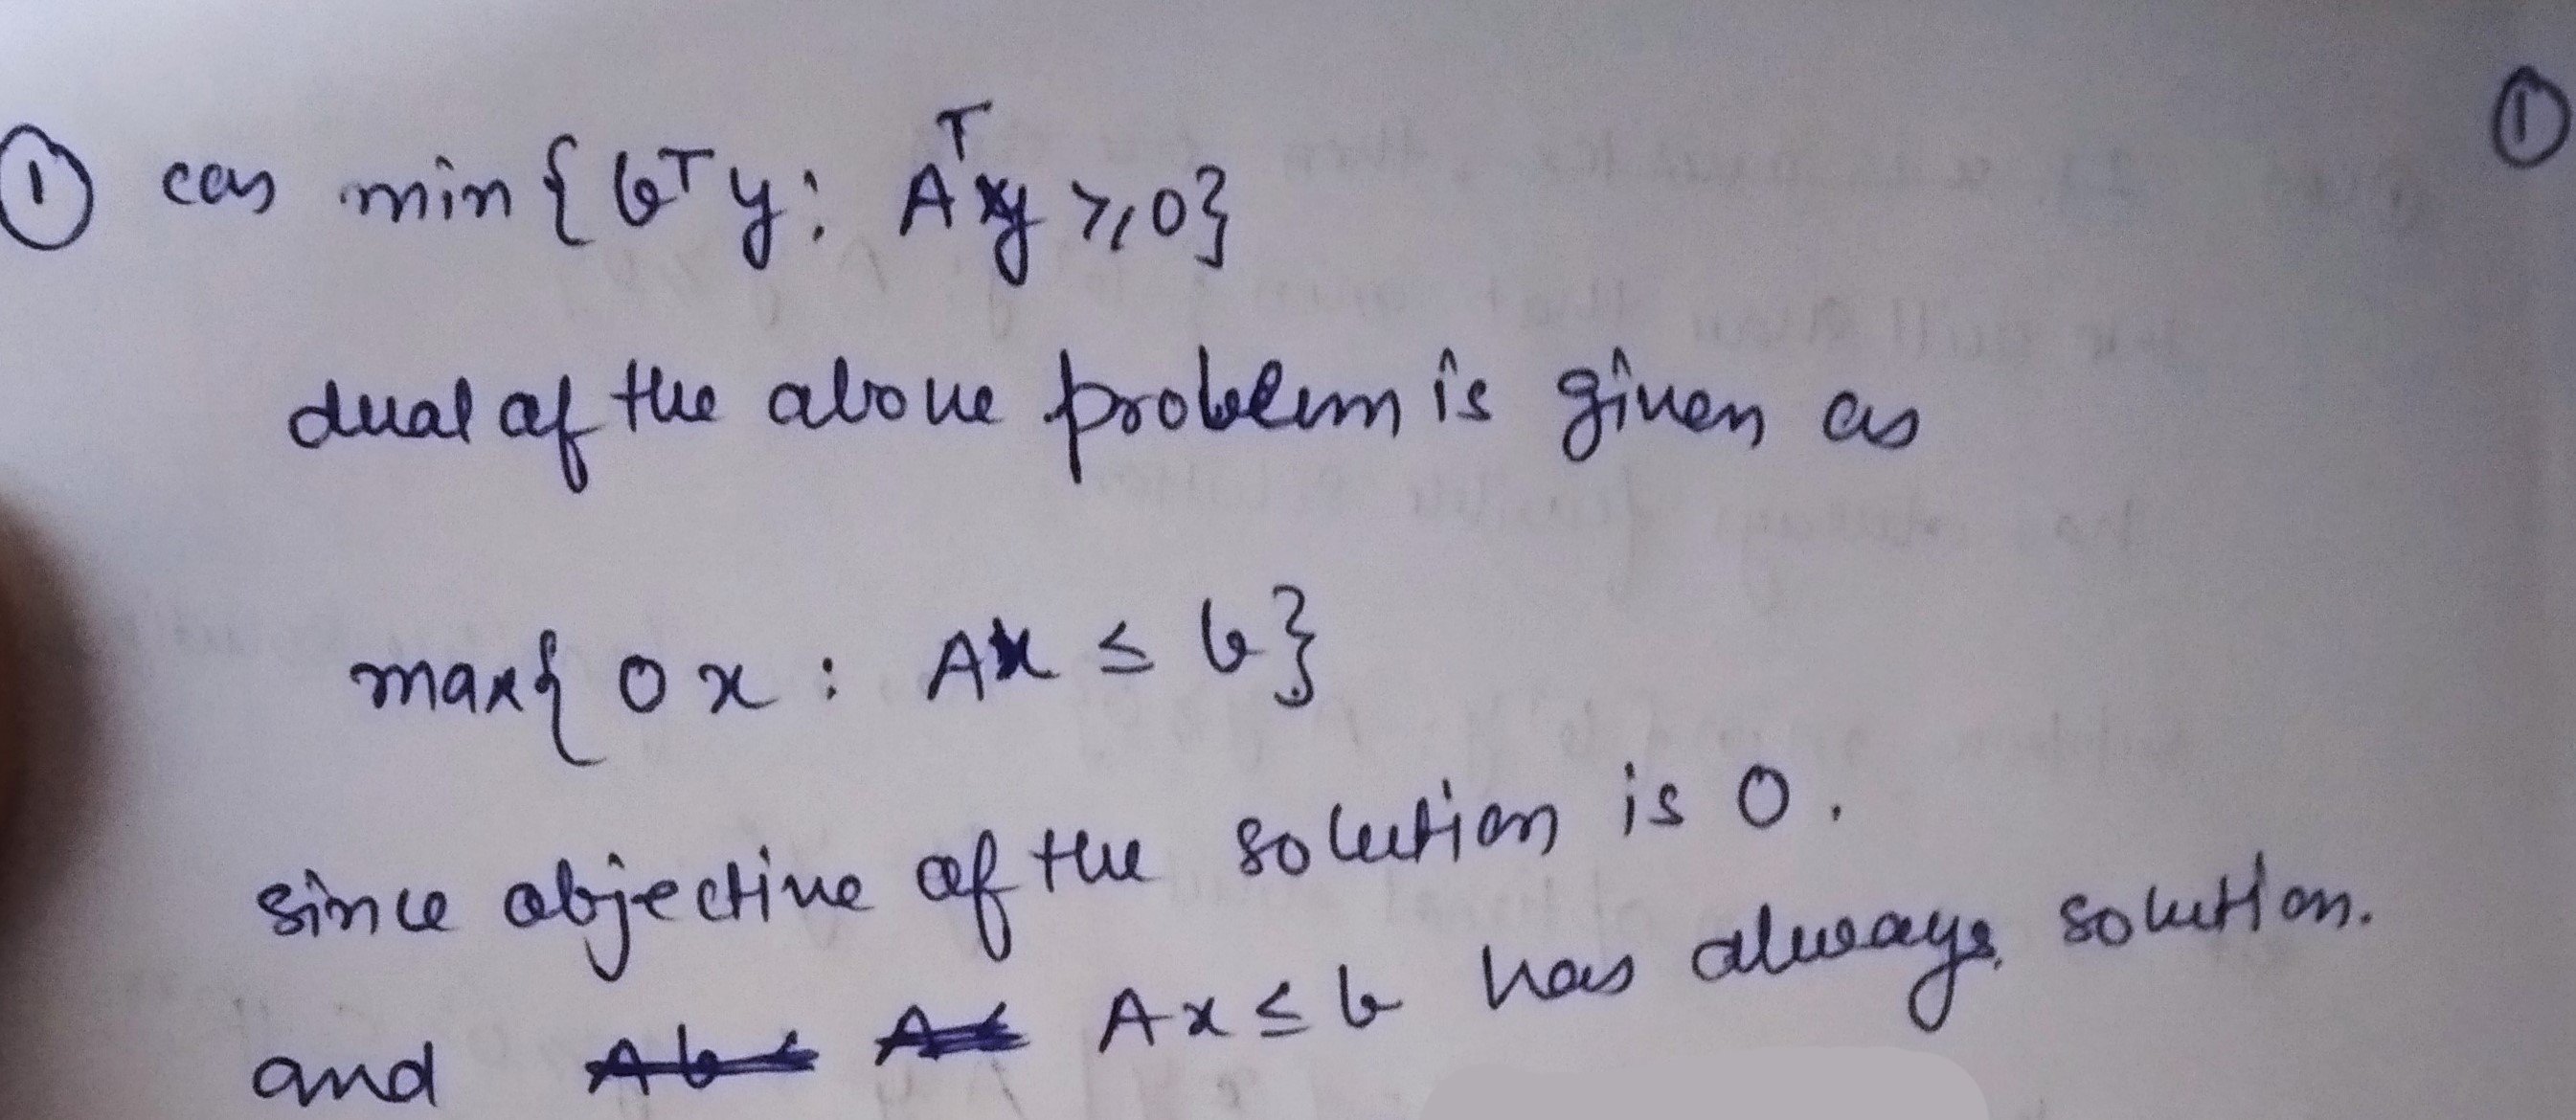 ① cas min { bᵀy : Aᵀy ≥ 0 } ①
dual of the above problem is given as
max { 0x : Ax ≤ b }
since objective of the solution is 0.
and Ax ≤ b has always solution.